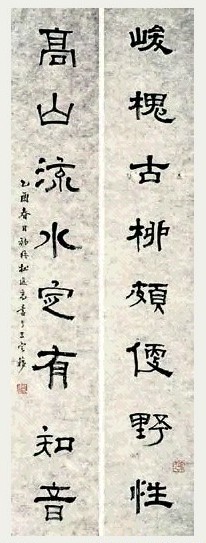 峻槐古柳頗便野性
高山流水定有知音
乙酉春日